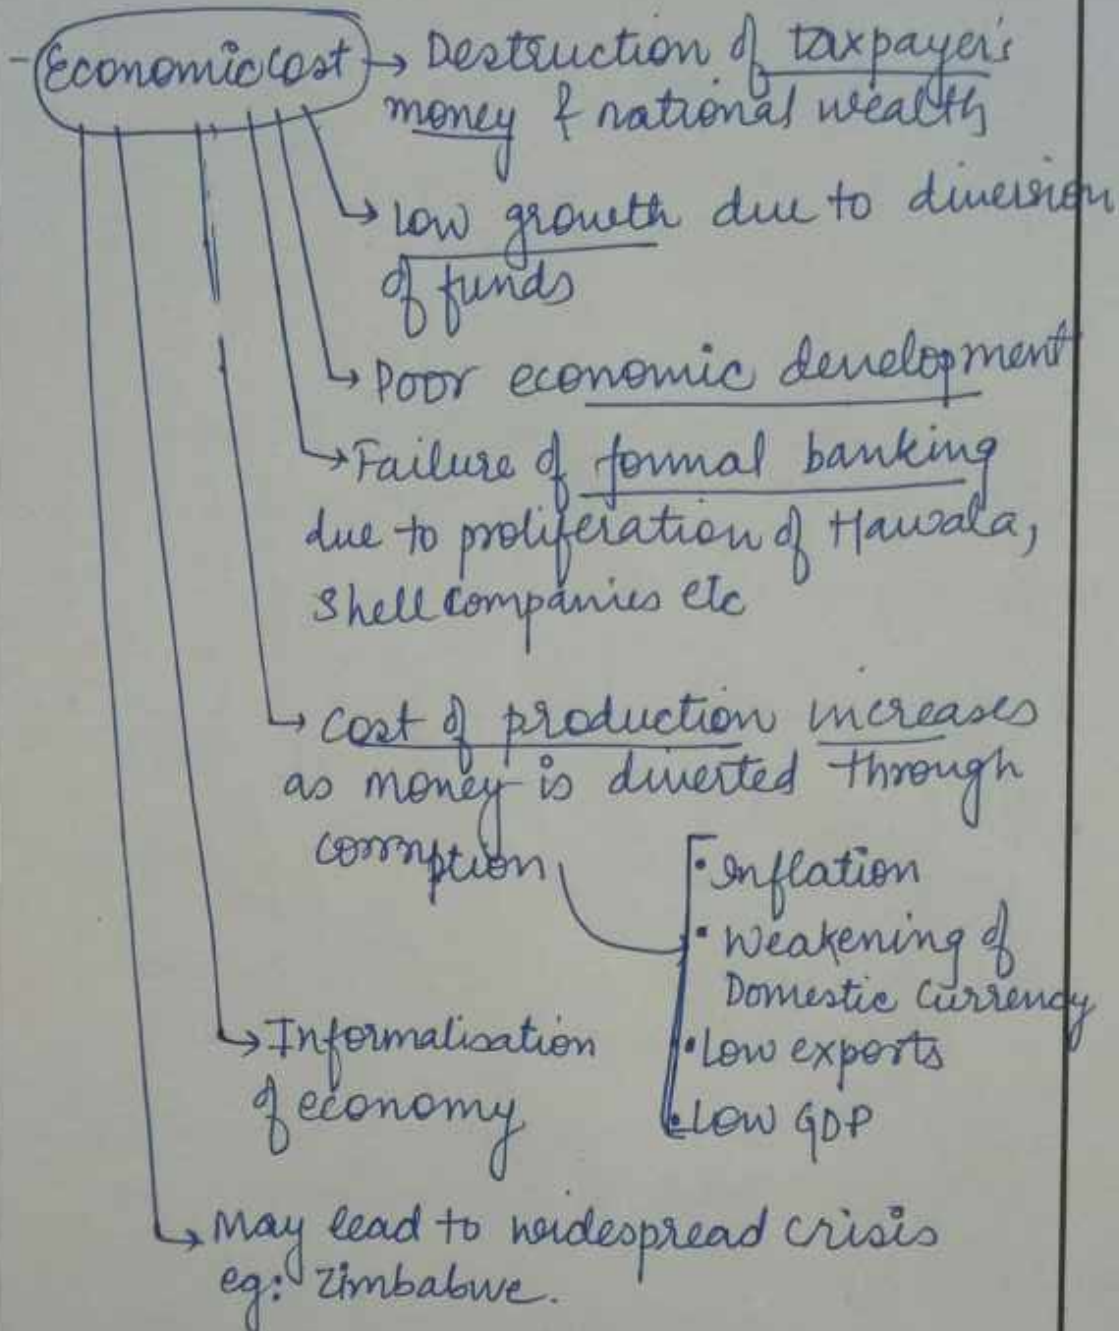 - Economic cost → Destruction of taxpayer's
money & national wealth
→ Low growth due to diversion
of funds
→ Poor economic development
→ Failure of formal banking
due to proliferation of Hawala,
Shell companies etc
→ Cost of production increases
as money is diverted through
corruption
• Inflation
• Weakening of
Domestic Currency
• Low exports
• Low GDP
→ Informalisation
of economy
→ May lead to widespread crisis
eg: Zimbabwe.